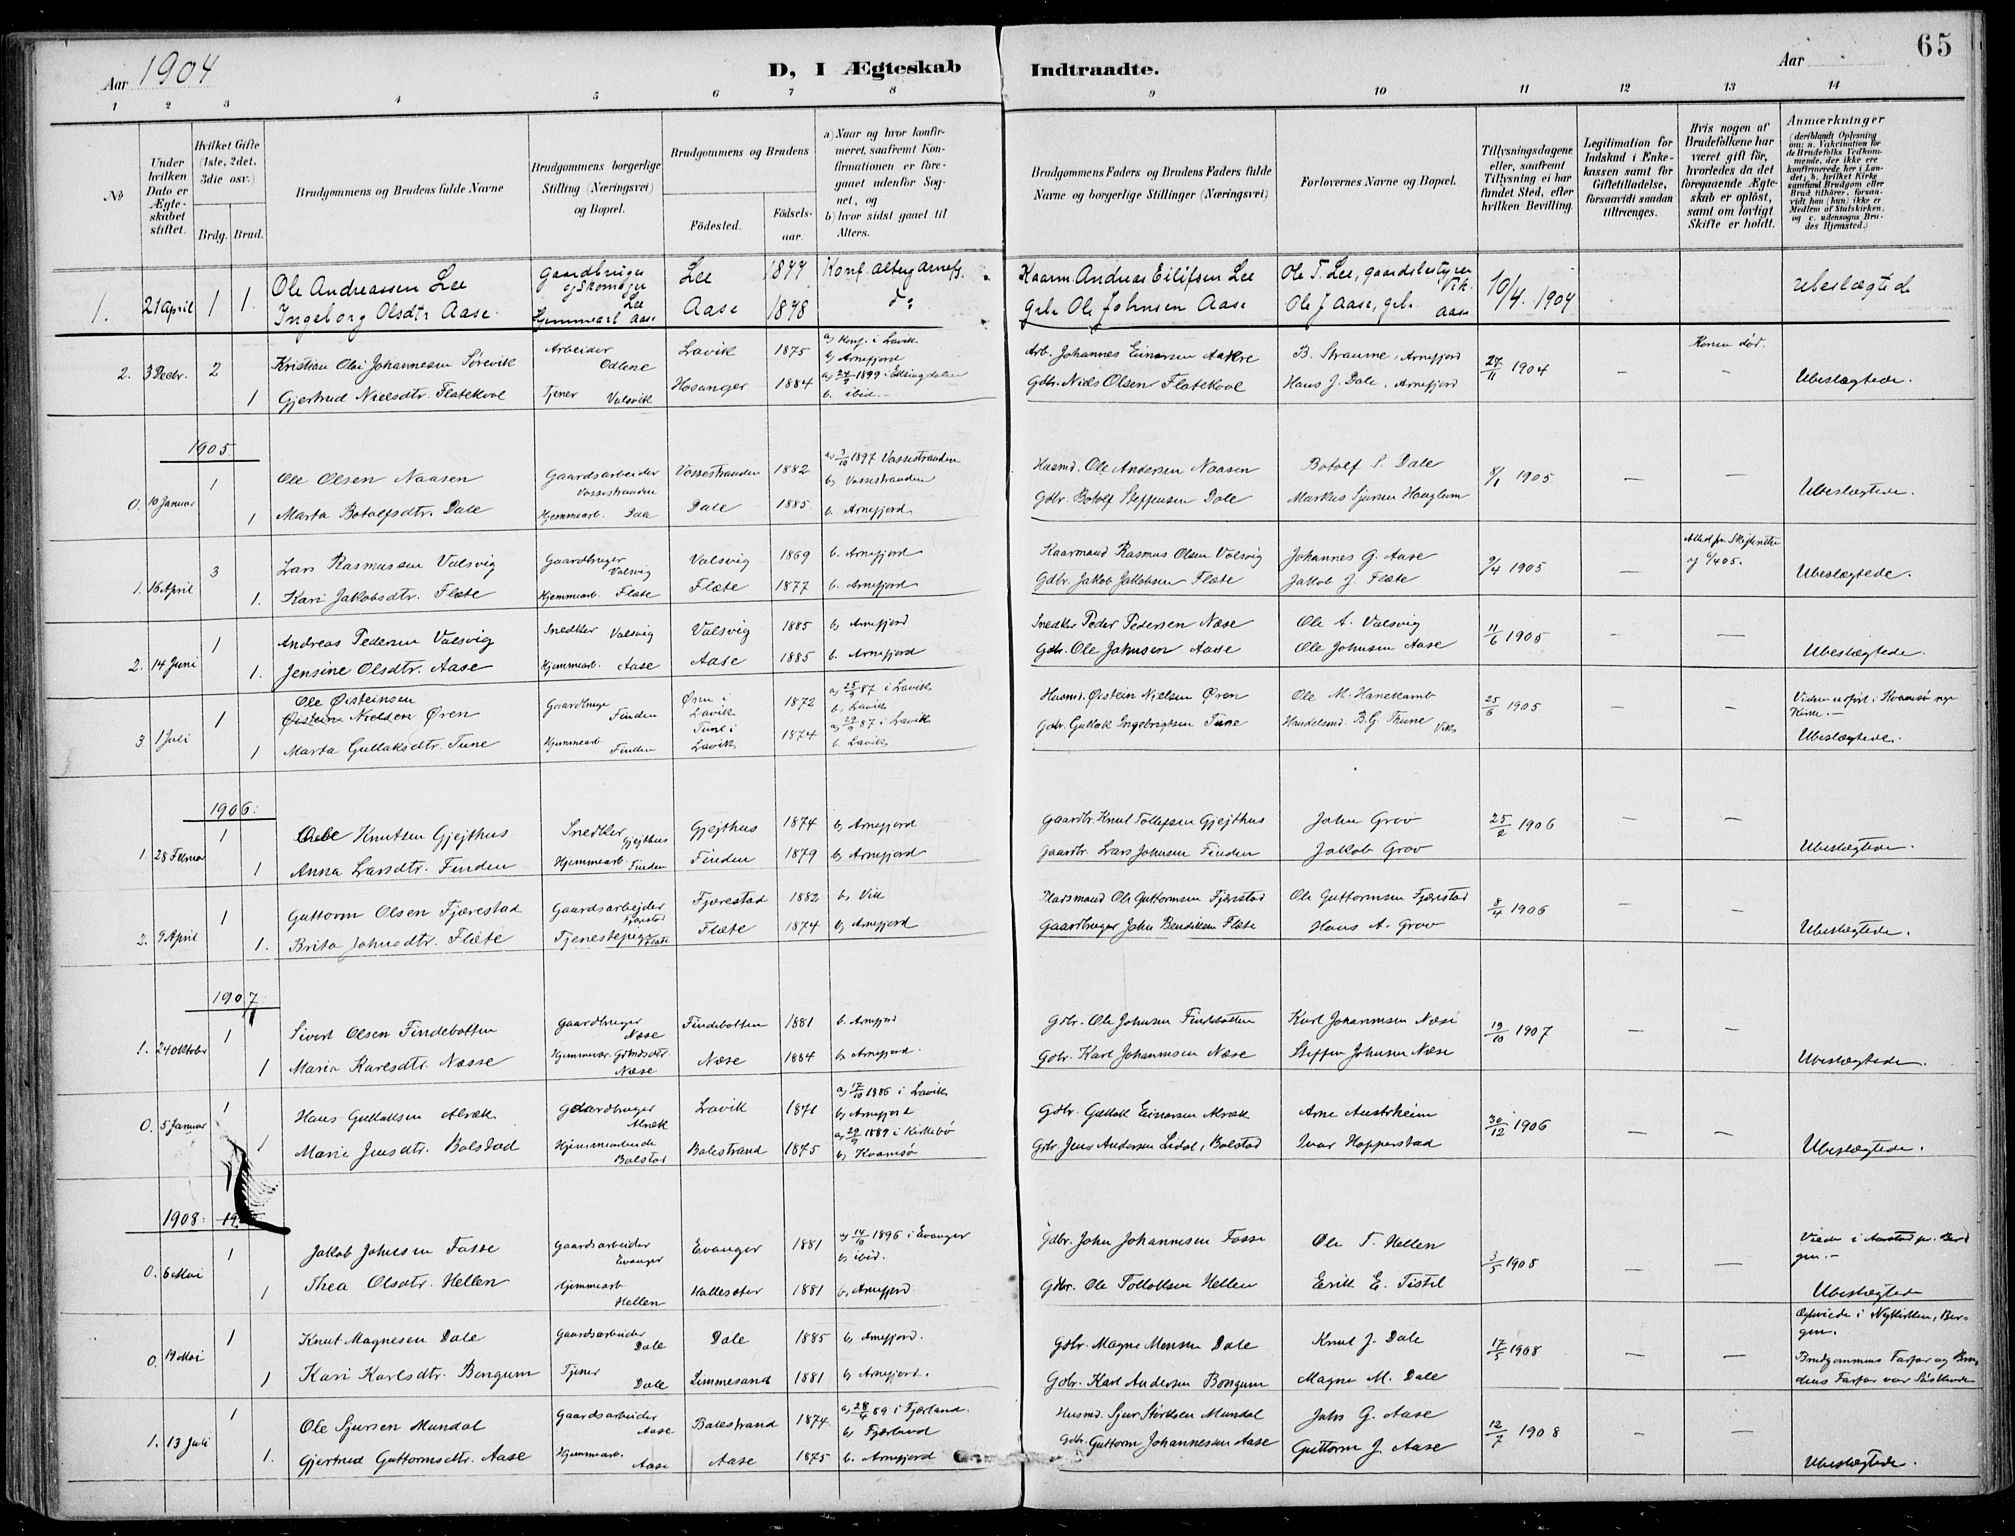 Aar 1904
D, I Ægteskab Indtraadte.
Aar
65
1 2 3 4 5 6 7 8 9 10 11 12 13 14
№
Under hvilken Dato er Ægteskabet stiftet.
Hvilket Gifte (1ste, 2det, 3die osv.)
Brdg. Brud.
Brudgommens og Brudens fulde Navne
Brudgommens borgerlige Stilling (Næringsvei) og Bopæl.
Brudgommens og Brudens
Fødested.
Fødselsaar.
a) Naar og hvor konfirmeret, saafremt Konfirmationen er foregaaet udenfor Sognet, og
b) hvor sidst gaaet til Alters.
Brudgommens Faders og Brudens Faders fulde Navne og borgerlige Stillinger (Næringsvei)
Forlovernes Navne og Bopæl.
Tillysningsdagene eller, saafremt Tillysning ei har fundet Sted, efter hvilken Bevilling.
Legitimation for Indskud i Enkekassen samt for Giftetilladelse, forsaavidt saadan tiltrænges.
Hvis nogen af Brudefolkene har været gift før, hvorledes da det foregaaende Ægteskab er opløst, samt om lovligt Skifte er holdt.
Anmærkninger (deriblandt Oplysning om: a. Vakcination for de Brudefolks Vedkommende, der ikke ere konfirmerede her i Landet; b. hvilket Kirkesamfund Brudgom eller Brud tilhører, forsaavidt han (hun) ikke er Medlem af Statskirken, og c. udensogns Brudes Hjemsted.)
1. 21 April 1 Ole Andreassen Lee Gaardbruger og Skomager Lee Lee 1877 Konf. alterg Arnefj. Kaarm. Andreas Eilifsen Lee Ole T. Lee, gaardsbestyrer Vik 10/4. 1904 ubeslægtede
1. Ingeborg Olsdtr Aase. Hjemmearb Aase Aase 1878 do Grbr Ole Johnsen Aase Ole J Aase, grbr. Aase
2. 3 Decbr. 2 Kristian Olai Johannesen Sørevik Arbeider Odlene Lavik 1875 a) Konf. i Lavik b) Arnefjord Arb. Johannes Einarsen Aakre B. Straume, Arnefjord 27/11 1904 — Konen død. Ubeslægtede.
1 Gjertrud Nielsdtr. Flatekvol Tjener Valsvik Hosanger 1884 a) 24/9 1899 i Eksingdalen b. ibid.- Gdbr. Niels Olsen Flatekvol Hans J. Dale, Arnefjord
1905
0. 10 Januar 1 Ole Olsen Naasen Gaardsarbeider Vossestranden Vossestranden 1882 a) 3/10 1897 Vossestranden b) Vossestranden Husmd. Ole Andersen Naasen Botolf S. Dale 8/1 1905 — — Ubeslægtede.
1 Marta Botolfsdtr. Dale Hjemmearb. Dale Dale 1885. b. Arnefjord. Gdbr. Botolf Steffensen Dale Markus Sjursen Hauglum
1. 16 April 3 Lars Rasmussen Valsvig Gaardbruger Valsvig Valsvig 1869 b. Arnefjord Kaarmand Rasmus Olsen Valsvig Johannes G. Aase 9/4 1905 — Ubeslægtede.
1. Kari Jakobsdtr. Flæte Hjemmearb. Flæte Flæte 1877 b. Arnefjord Gdbr. Jakob Jakobsen Flæte Jakob J. Flæte
2. 14 Juni 1 Andreas Pedersen Valsvig Snedker Valsvig Valsvig 1885 b) Arnefjord Snedker Peder Pedersen Næse Ole A. Valsvig 11/6 1905 — — Ubeslægtede.
1. Jensine Olsdtr. Aase Hjemmearb. Aase Aase 1885 b. Arnefjord Gdbr. Ole Johnsen Aase Ole Johnsen Aase
3 1 Juli 1 Ole Øisteinsen Øistein Nielsen Øren Gaardbruger Finden Øren i Lavik 1872 a) 25/9 87 i Lavik b. Lavik Husmd. Øistein Nielsen Øren Ole M. Hanekamb 25/6 1905 Kvamsø nye Kirke.—
1 Marta Gullaksdtr. Tune Hjemmearb. Finden Tune i Lavik 1874 87 i Lavik b. Lavik Gdbr. Gullak Ingebrigtsen Tune Handelsmd. B. G. Thune Vik Ubeslægtede.
1906:
1. 28 Februar 1 Ole Knutsen Gjejthus Snedker Gjejthus Gjejthus 1874 b) Arnefjord Gaardbr. Knut Tollefsen Gjejthus John Grov 25/2 1906 — — Ubeslægtede.
1 Anna Larsdtr. Finden Hjemmearb. Finden Finden 1879 b) Arnefjord Gaardbr. Lars Johnsen Finden Jakob Grov
2. 9 April 1 Guttorm Olsen Fjærestad Gaardsarbejder Fjærestad Fjærestad 1882 b. Vik Husmand Ole Guttormsen Fjærestad Ole Guttormsen Fjærestad 8/4 1906 — — Ubeslægtede.
1. Brita Johnsdtr. Flæte Tjenestepige Flæte Flæte 1874 b) Arnefjord Gaardbruger John Bendiksen Flæte Hans A. Grov
1907
1. 24 Oktober 1 Sivert Olsen Findebotten Gaardbruger Næse Findebotten 1881 b. Arnefjord Gdbr. Ole Johnsen Findebotten Karl Johannesen Næse 19/10 1907 — — Ubeslægtede.
1 Maria Karlsdtr. Næsse Hjemmevær. Gdmdsdtr. Næse Næse 1884 b. Arnefjord. Gdbr. Karl Johannesen Næse Steffen Johnsen Næse
0. 5 Januar 1 Hans Gullaksen Alræk Gaardbruger Alræk Lavik 1871 a) 17/10 1886 i Lavik b) Arnefjord Gdbr. Gullak Einarsen Alræk Arne Austrheim 30/12 1906 — — Ubeslægtede.
1 Marie Jensdtr. Bolstad Hjemmearbeide Bolstad Balestrand 1875 a) 29/9 1889 i Kirkebø b) Kvamsø Gdbr. Jens Andersen Lidal, Bolstad Ivar Hopperstad
1908:
0. 6 Mai 1 Jakob Johnsen Fosse Gaardsarbeider Evanger Evanger 1881 a) 14/10 1896 i Evanger b) ibid. Gdbr. John Johannesen Fosse Ole T. Hellen 3/5 1908 — — Viede i Aarstad pr. Bergen.—
1 Thea Olsdtr. Hellen Hjemmearb. Hellen Hallesater 1881 b. Arnefjord. Gdbr. Ole Tollaksen Hellen Erik E. Tistel Ubeslægtede
0. 19 Mai 1 Knut Magnesen Dale Gaardsarbeider Dale Dale 1885 b) Arnefjord. Gdbr. Magne Monsen Dale Knut J. Dale 17/5 1908 — — i Nykirken, Bergen.
1 Kari Karlsdtr. Bongum Tjener Dale Limmesand 1881 b) Arnefjord. Gdbr. Karl Andersen Bongum Magne M. Dale Brudgommens Farfar og Brudens Farfar var Søskende
1. 13 Juli 1 Ole Sjursen Mundal Gaardsarbeider Aase Balestrand 1874. a) 28/4 89 i Fjærland. b) Fjærland Husmd. Sjur Størksen Mundal Johs G. Aase 12/7 1908 — — Ubeslægtede.
1. Gjertrud Guttormsdtr. Aase Hjemmearb. Aase Aase 1875 b. Arnefjord Gdbr. Guttorm Johannessen Aase Guttorm J. Aase